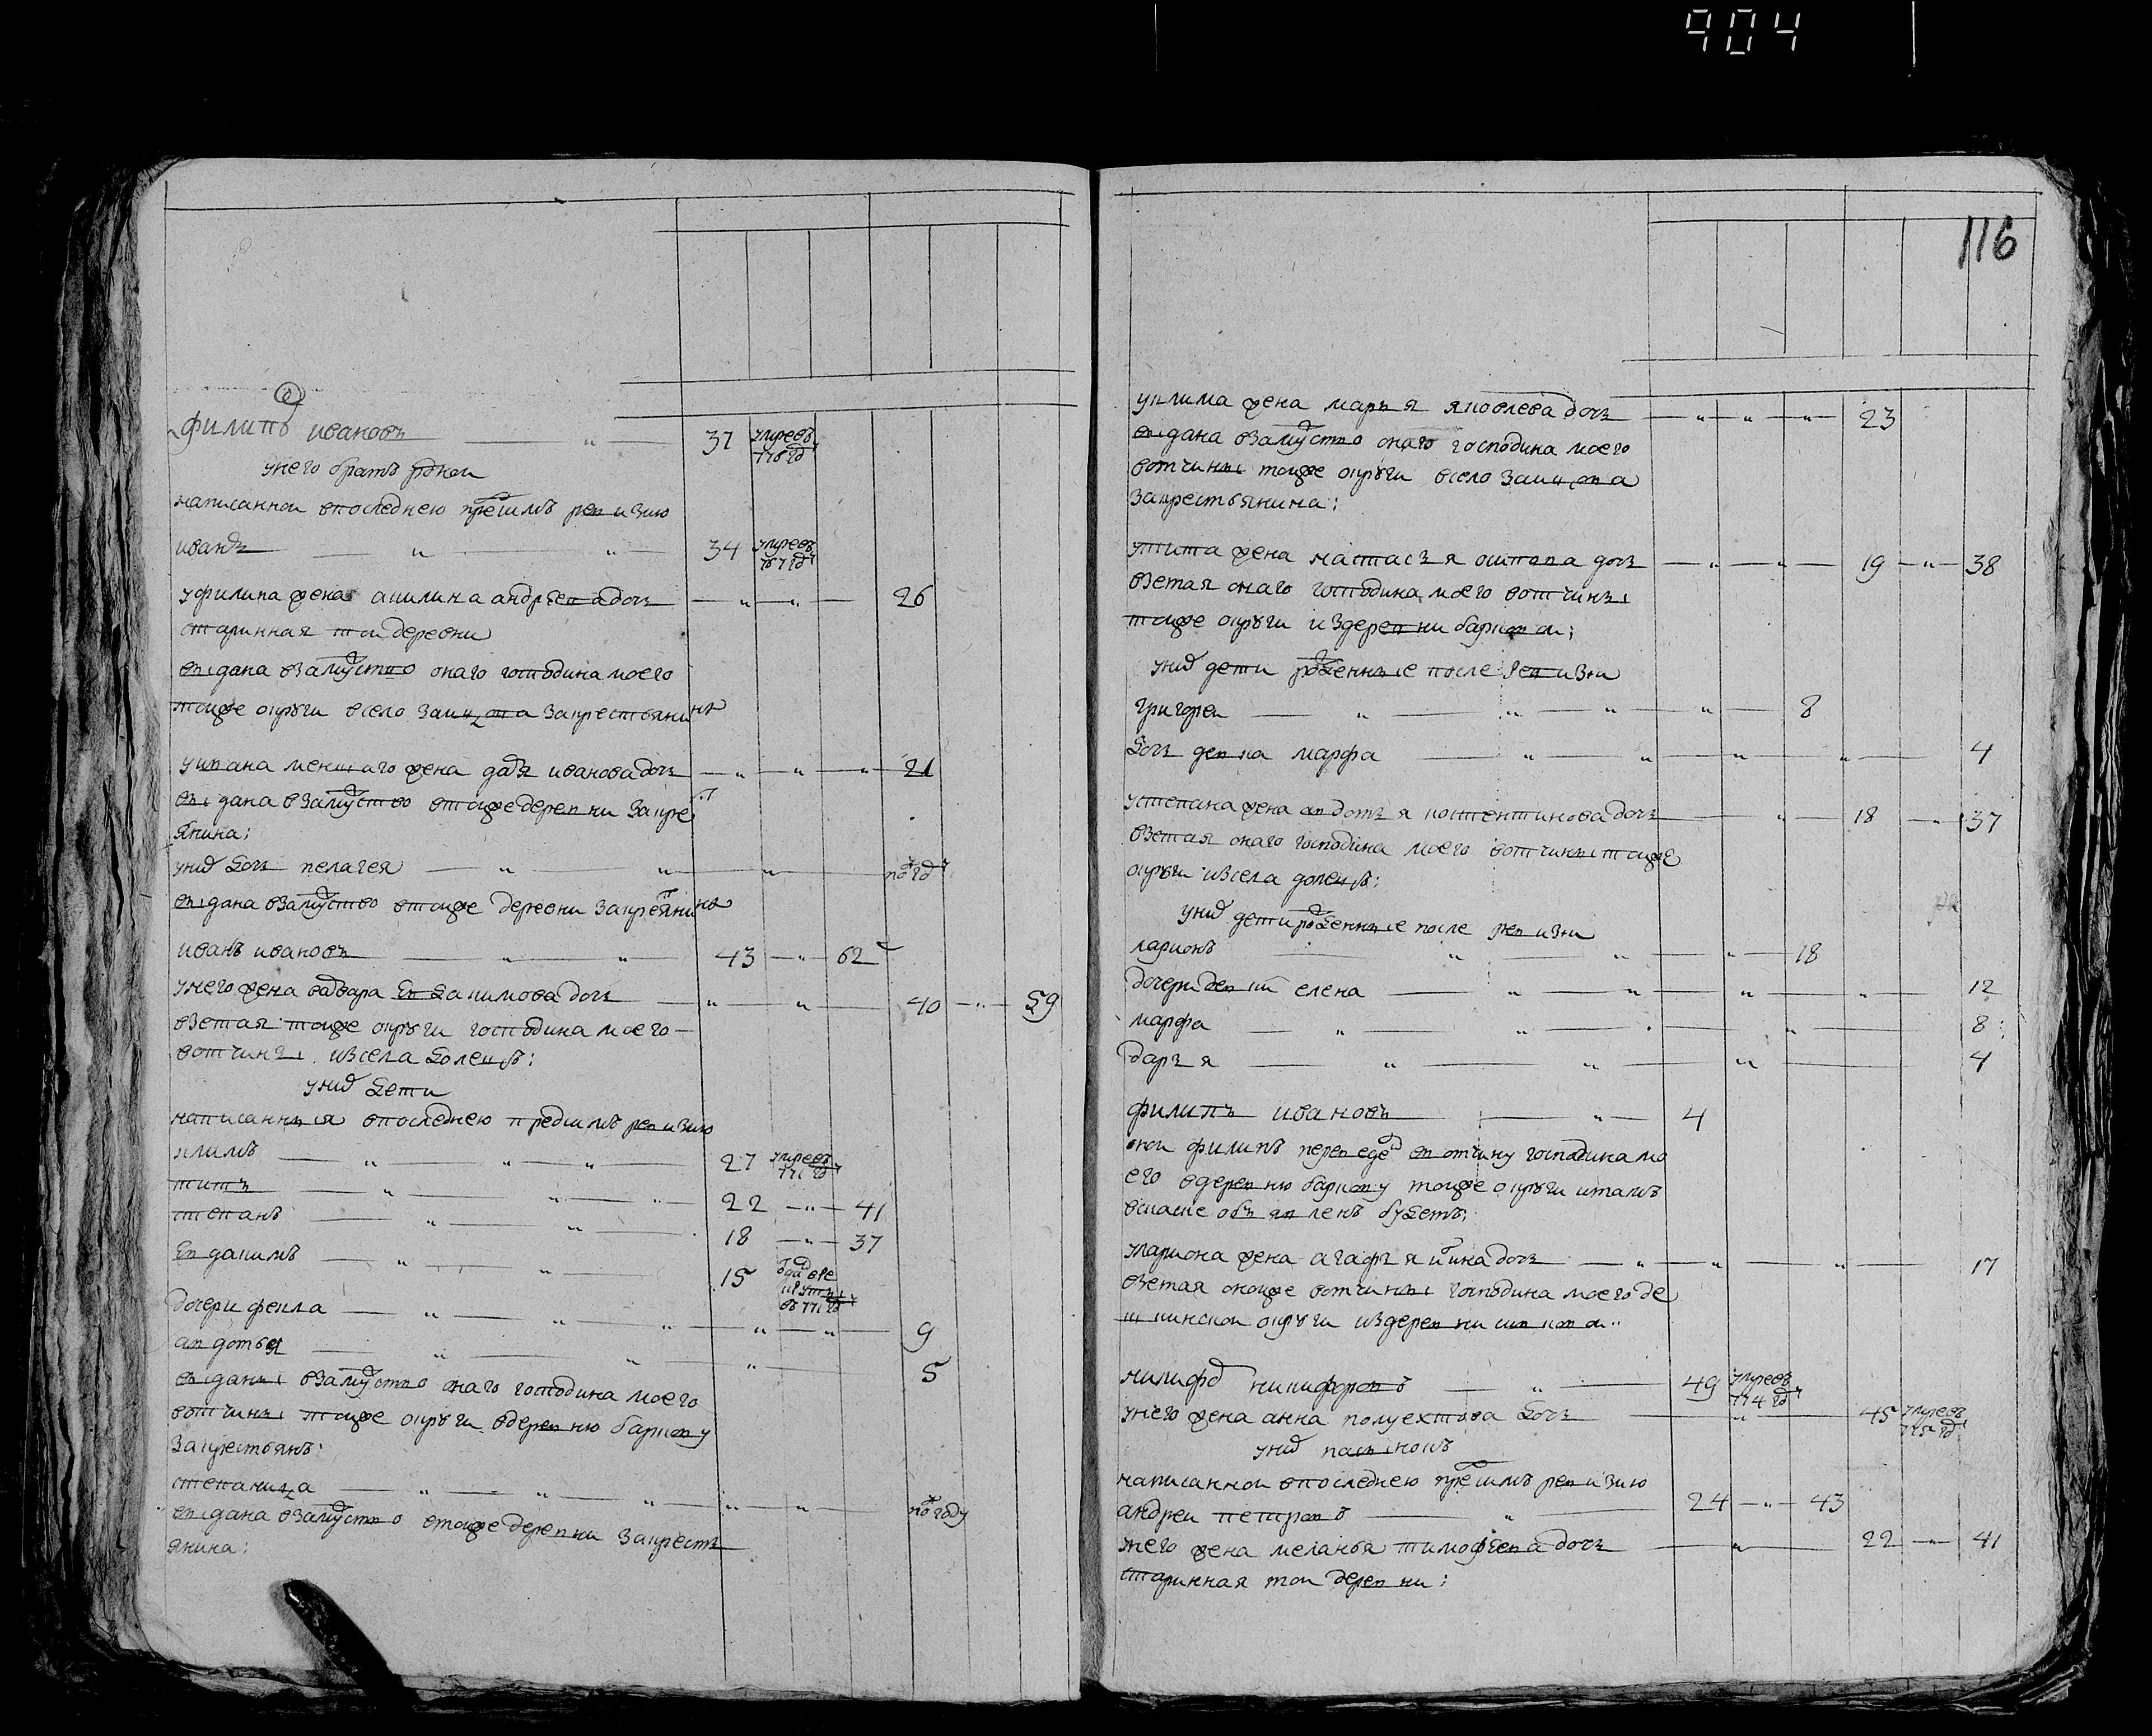 904
116
филипъ ивановъ — " — 37 умревъ 776 год
унего братъ роднои
написаннои впоследнею предшимъ ревизию
иванъ — " — " — 34 умре въ 767 год
уфилипа жена акилина андреева дочь — " — " — 26
старинная тои деревни
выдана взамужство онаго господина моего
тоиже округи всело заицова закрестьянина
уивана меншаго жена дарья иванова дочь — " — " — " — 21
выдана взамужство втоиже деревни закрест
янина:
уних дочь пелагея — " — " — " — полгод
выдана взамужство втоиже деревни закрестянина
иванъ ивановъ — " — " — 43 — " — 62
унего жена варвара Евдакимова дочь — " — " — 40 — " — 59
взетая тоиже округи господина моего
вотчины изсела долецъ:
уних дети
написанныя впоследнею предшимъ ревизию
климъ — " — " — " — 27 умревъ 771 год
титъ — " — " — " — 22 — " — 41
степанъ — " — " — 18 — " — 37
Евдакимъ — " — " — 15 отдан в рекруты въ 771 год
дочери фекла — " — " — " — " — " — 9
авдотья — " — " — " — 5
выданы взамужство онаго господина моего
вотчины тоиже округи вдеревню баркову
закрестьянъ:
степанида — " — " — " — " — " — полгоду
выдана взамужство втоиже деревни закресть
янина:
уклима жена марья яковлева дочь — " — " — " — 23
выдана взамужство онаго господина моего
вотчины тоиже округи всело заицова
закрестьянина:
утита жена настасья осипова дочь — " — " — 19 — " — 38
взетая онаго господина моего вотчины
тоиже округи издеревни барковои:
уних дети рожденные после ревизии
григореи — " — " — " — " — 8
дочь девка марфа — " — " — " — " — 4
устепана жена авдотья костентинова дочь — " — 18 — " — 37
взетая онаго господина моего вотчины тоиже
округи изсела долецъ:
уних дети рожденные после ревизии
ларионъ — " — " — " — 18
дочери девки елена — " — " — " — " — 12
марфа — " — " — " — 8
дарья — " — " — " — 4
филипъ ивановъ — " — 4
онои филипъ переведен ввотчину господина мо
его вдеревню баркову тоиже округи итамъ
вскаске объявленъ будетъ:
улариона жена агафья ильина дочь — " — " — " — 17
взетая оноиже вотчины господина моего де
округи издеревни
никифор никифоровъ — " — 49 умревъ 774 год
унего жена анна полуектова дочь — " — 45 умревъ 775 год
уних пасынокъ
написаннои впоследнею предшимъ ревизию
андреи петровъ — " — 24 — " — 43
унего жена меланья тимофеева дочь — " — 22 — " — 41
старинная тои деревни: